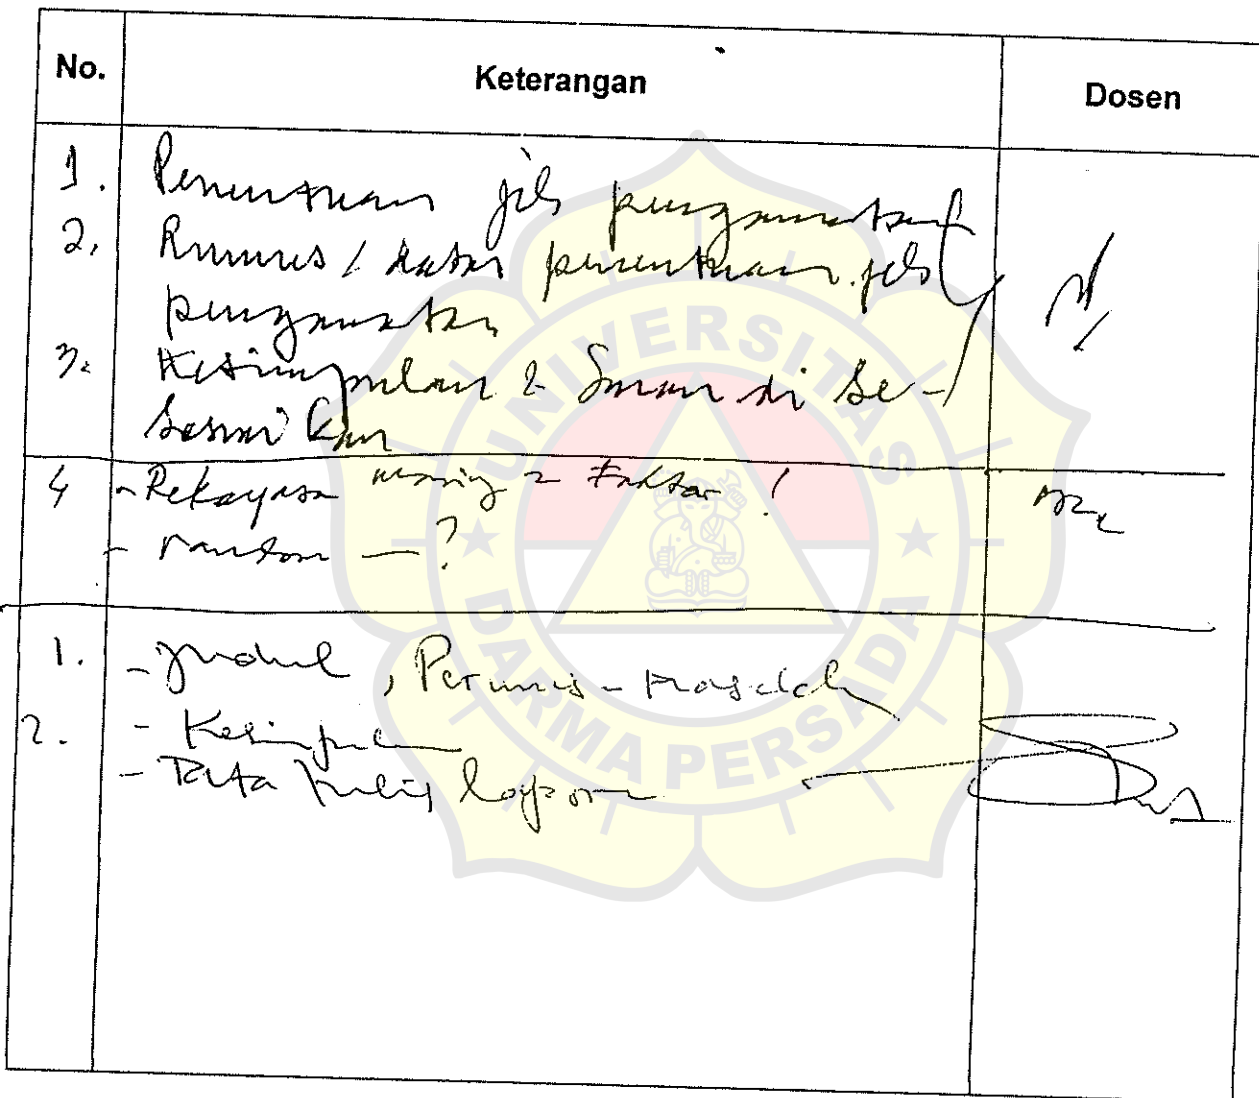 No. Keterangan Dosen
1. Penentuan jlh pengamatan
2. Rumus / dasar penentuan jlh
pengamatan
3. Kesimpulan & Saran di se-
suaikan
4 - Rekayasa masing2 Faktor !
- random — ?
1. - Judul, Perumus - Masalah
2. - Kesimpulan
- Tata tulis laporan
UNIVERSITAS
DARMA PERSADA